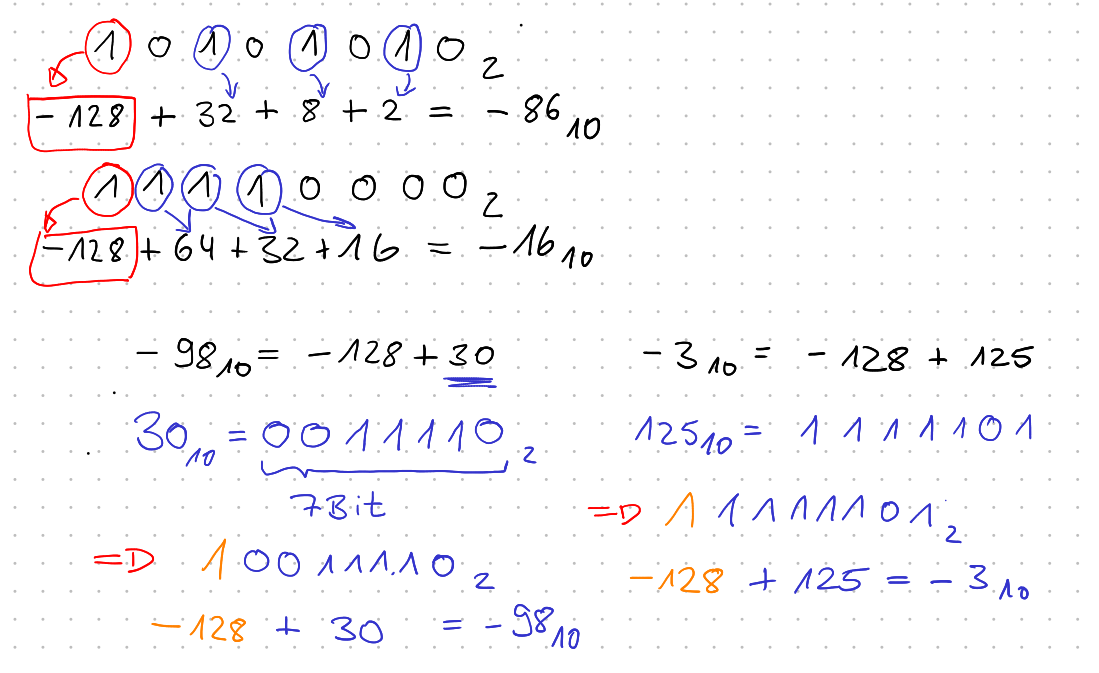 1 0 1 0 1 0 1 0 ₂
-128 + 32 + 8 + 2 = -86₁₀
1 1 1 1 0 0 0 0 ₂
-128 + 64 + 32 + 16 = -16₁₀
-98₁₀ = -128 + 30
30₁₀ = 0011110₂
7Bit
=> 10011110₂
-128 + 30 = -98₁₀
-3₁₀ = -128 + 125
125₁₀ = 1111101
=> 11111101₂
-128 + 125 = -3₁₀